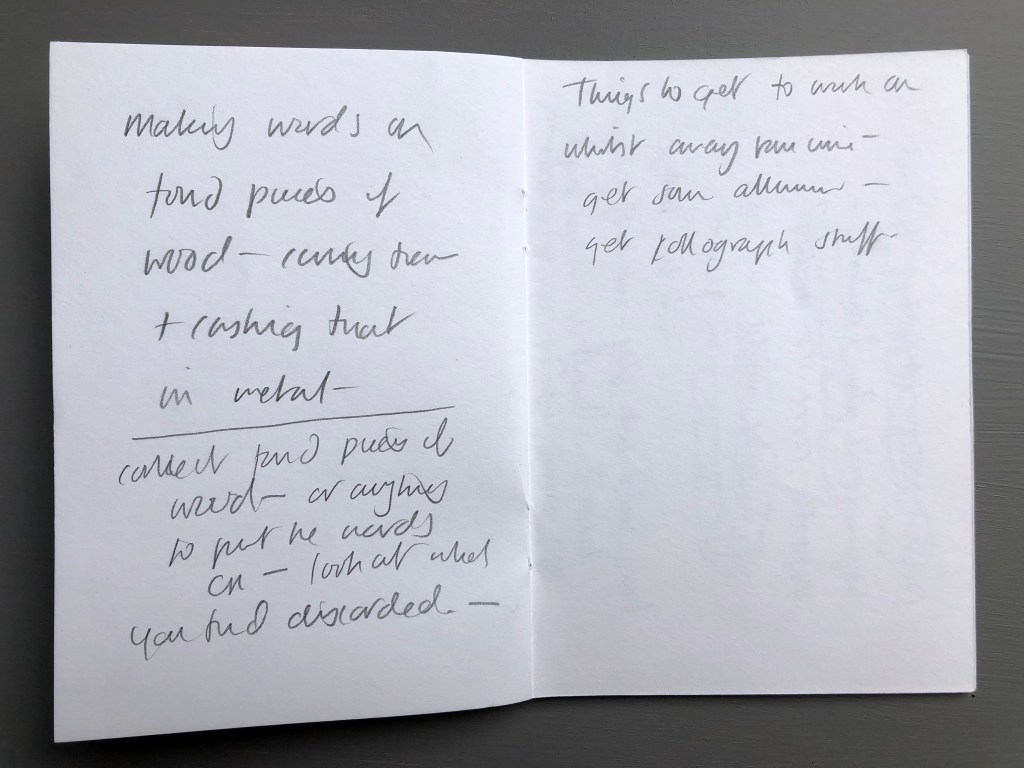 making words on
found pieces of
wood – carving them
+ casting that
in metal –
collect found pieces of
wood – or anything
to put the words
on – look at what
you find discarded. –
Things to get to work on
whilst away
get some –
get stuff –